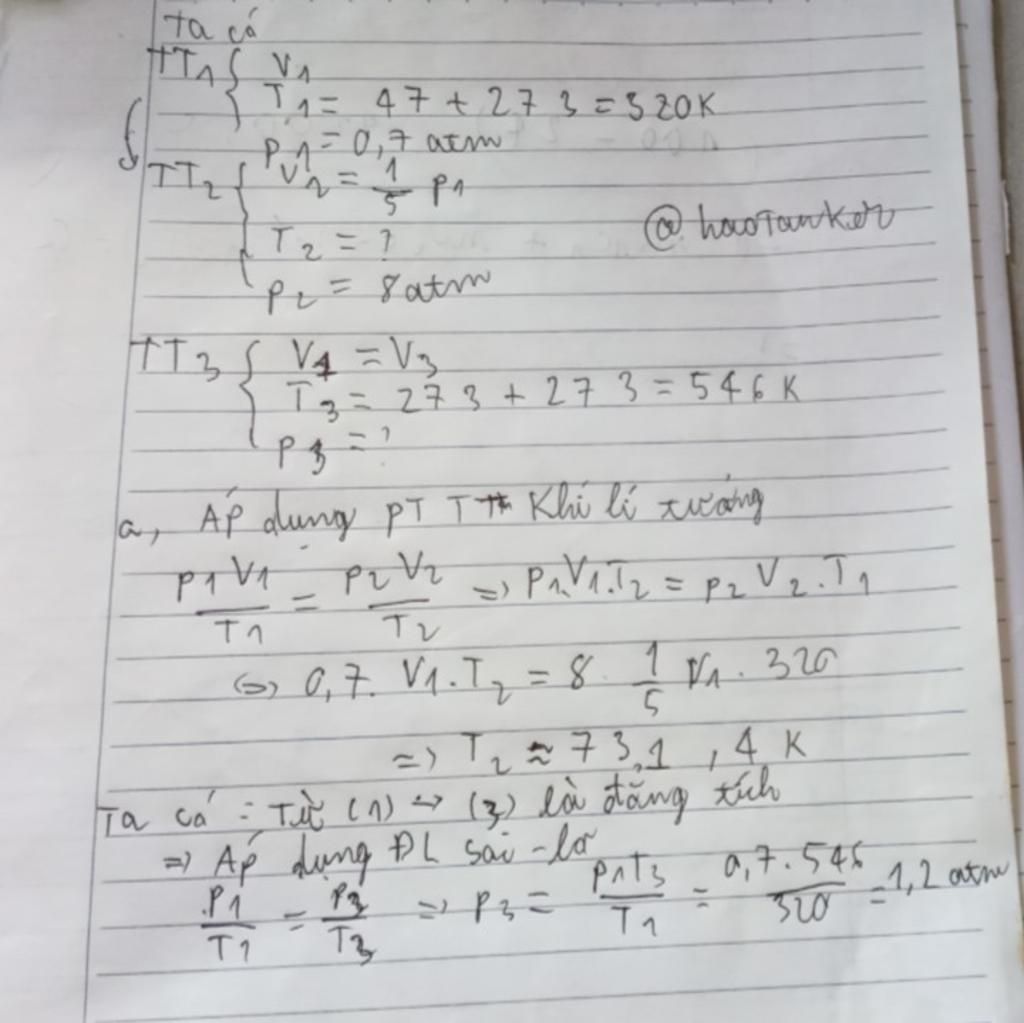 Ta có
TT1 { V1
T1 = 47 + 273 = 320K
P1 = 0,7 atm
TT2 { V2 = 1/5 P1
T2 = ?
@haoTanker
P2 = 8 atm
TT3 { V1 = V3
T3 = 273 + 273 = 546 K
P3 = ?
a, Áp dụng PT TT Khí lí tưởng
P1V1/T1 = P2V2/T2 => P1.V1.T2 = P2V2.T1
<=> 0,7. V1.T2 = 8. 1/5 V1. 320
=> T2 ≈ 73,1,4 K
Ta có: Từ (1) -> (3) là đẳng tích
=> Áp dụng ĐL sái-lơ
P1/T1 = P3/T3 => P3 = P1T3/T1 = 0,7.546/320 = 1,2 atm